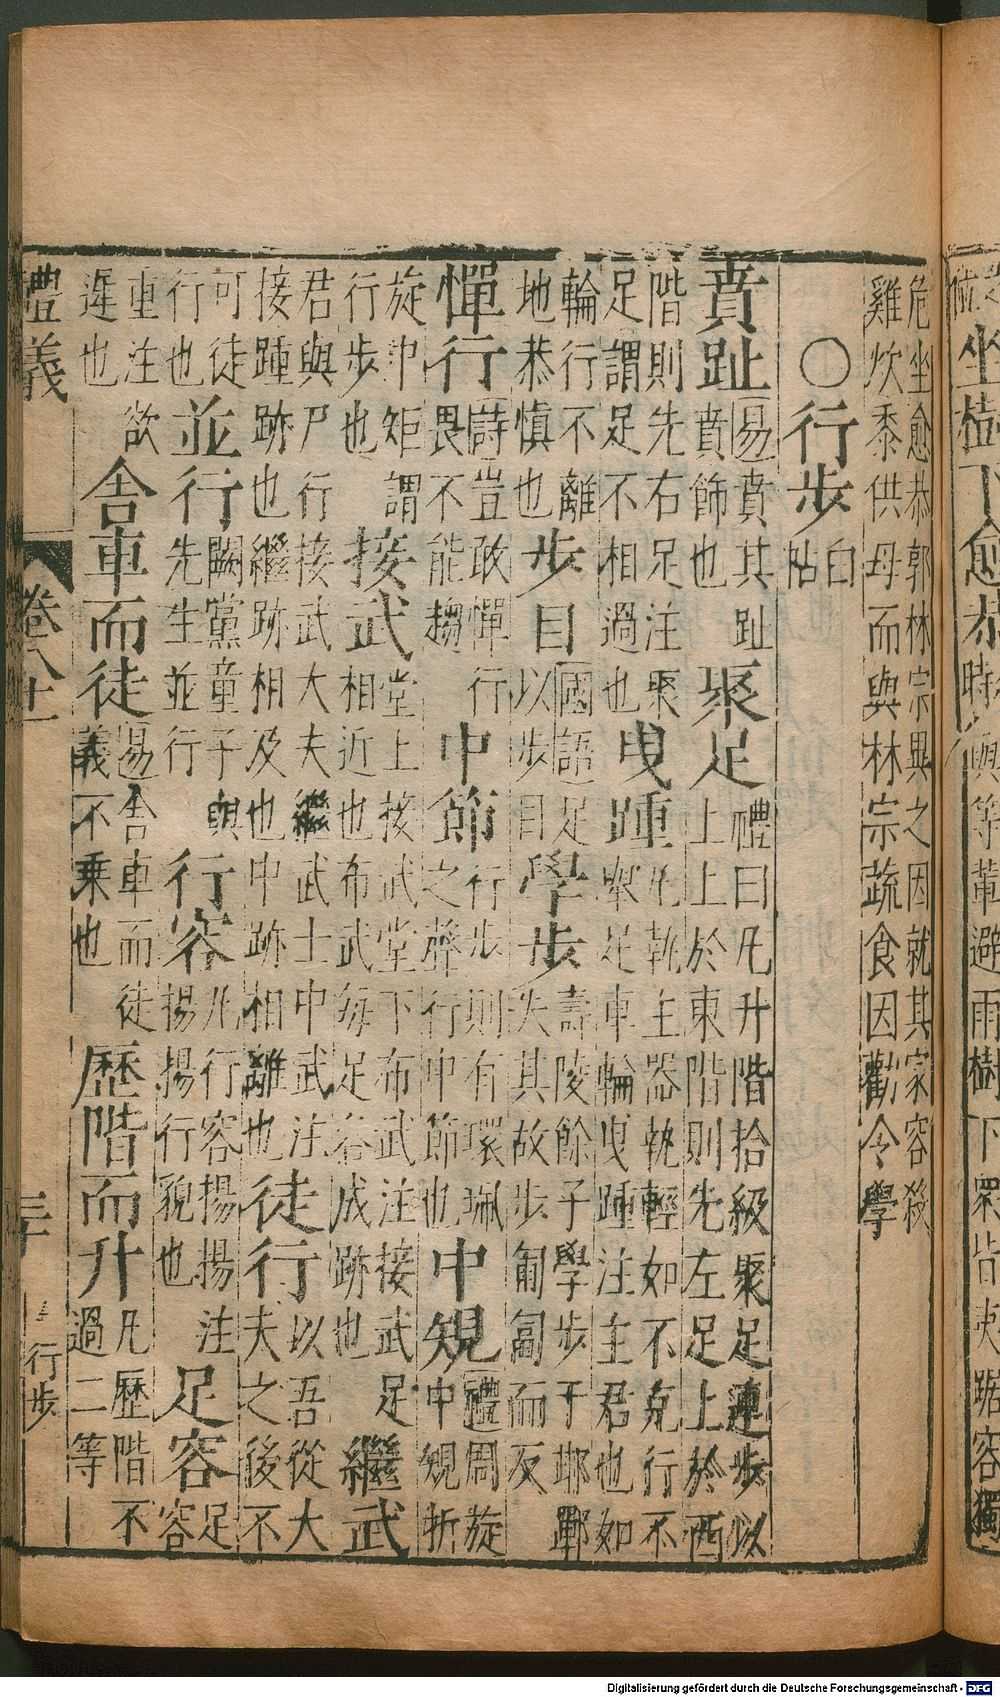 坐樹下愈恭時與等輩避雨樹下眾皆夷踞容獨
危坐愈恭郭林宗異之因就其家容殺
雞炊黍供母而與林宗蔬食因勸令學
○行步白帖
賁趾易賁其趾賁飾也聚足禮曰凡升階拾級聚足連步以上上於東階則先左足上於西
階則先右足注聚足謂足不相過也曳踵凡執主器執輕如不克行不舉足車輪曳踵注主君也如
輪行不離地恭慎也步目國語足以步目學步壽陵餘子學步于邯鄲失其故步匍匐而反
憚行詩豈敢憚行畏不能趨中節行步則有環珮之聲行中節也中規禮周旋中規折
旋中矩謂行步也接武堂上接武堂下布武注接武足相近也布武每足各成跡也繼武
君與尸行接武大夫繼武士中武注接踵跡也繼跡相及也中跡相離也徒行以吾從大夫之後不
可徒行也並行闕黨童子與先生並行行容凡行容揚揚注揚揚行貌也足容足容
重注欲遲也舍車而徒易舍車而徒義不乘也歷階而升凡歷階不過二等
禮義 卷八十一 三十 行步
Digitalisierung gefördert durch die Deutsche Forschungsgemeinschaft - DFG